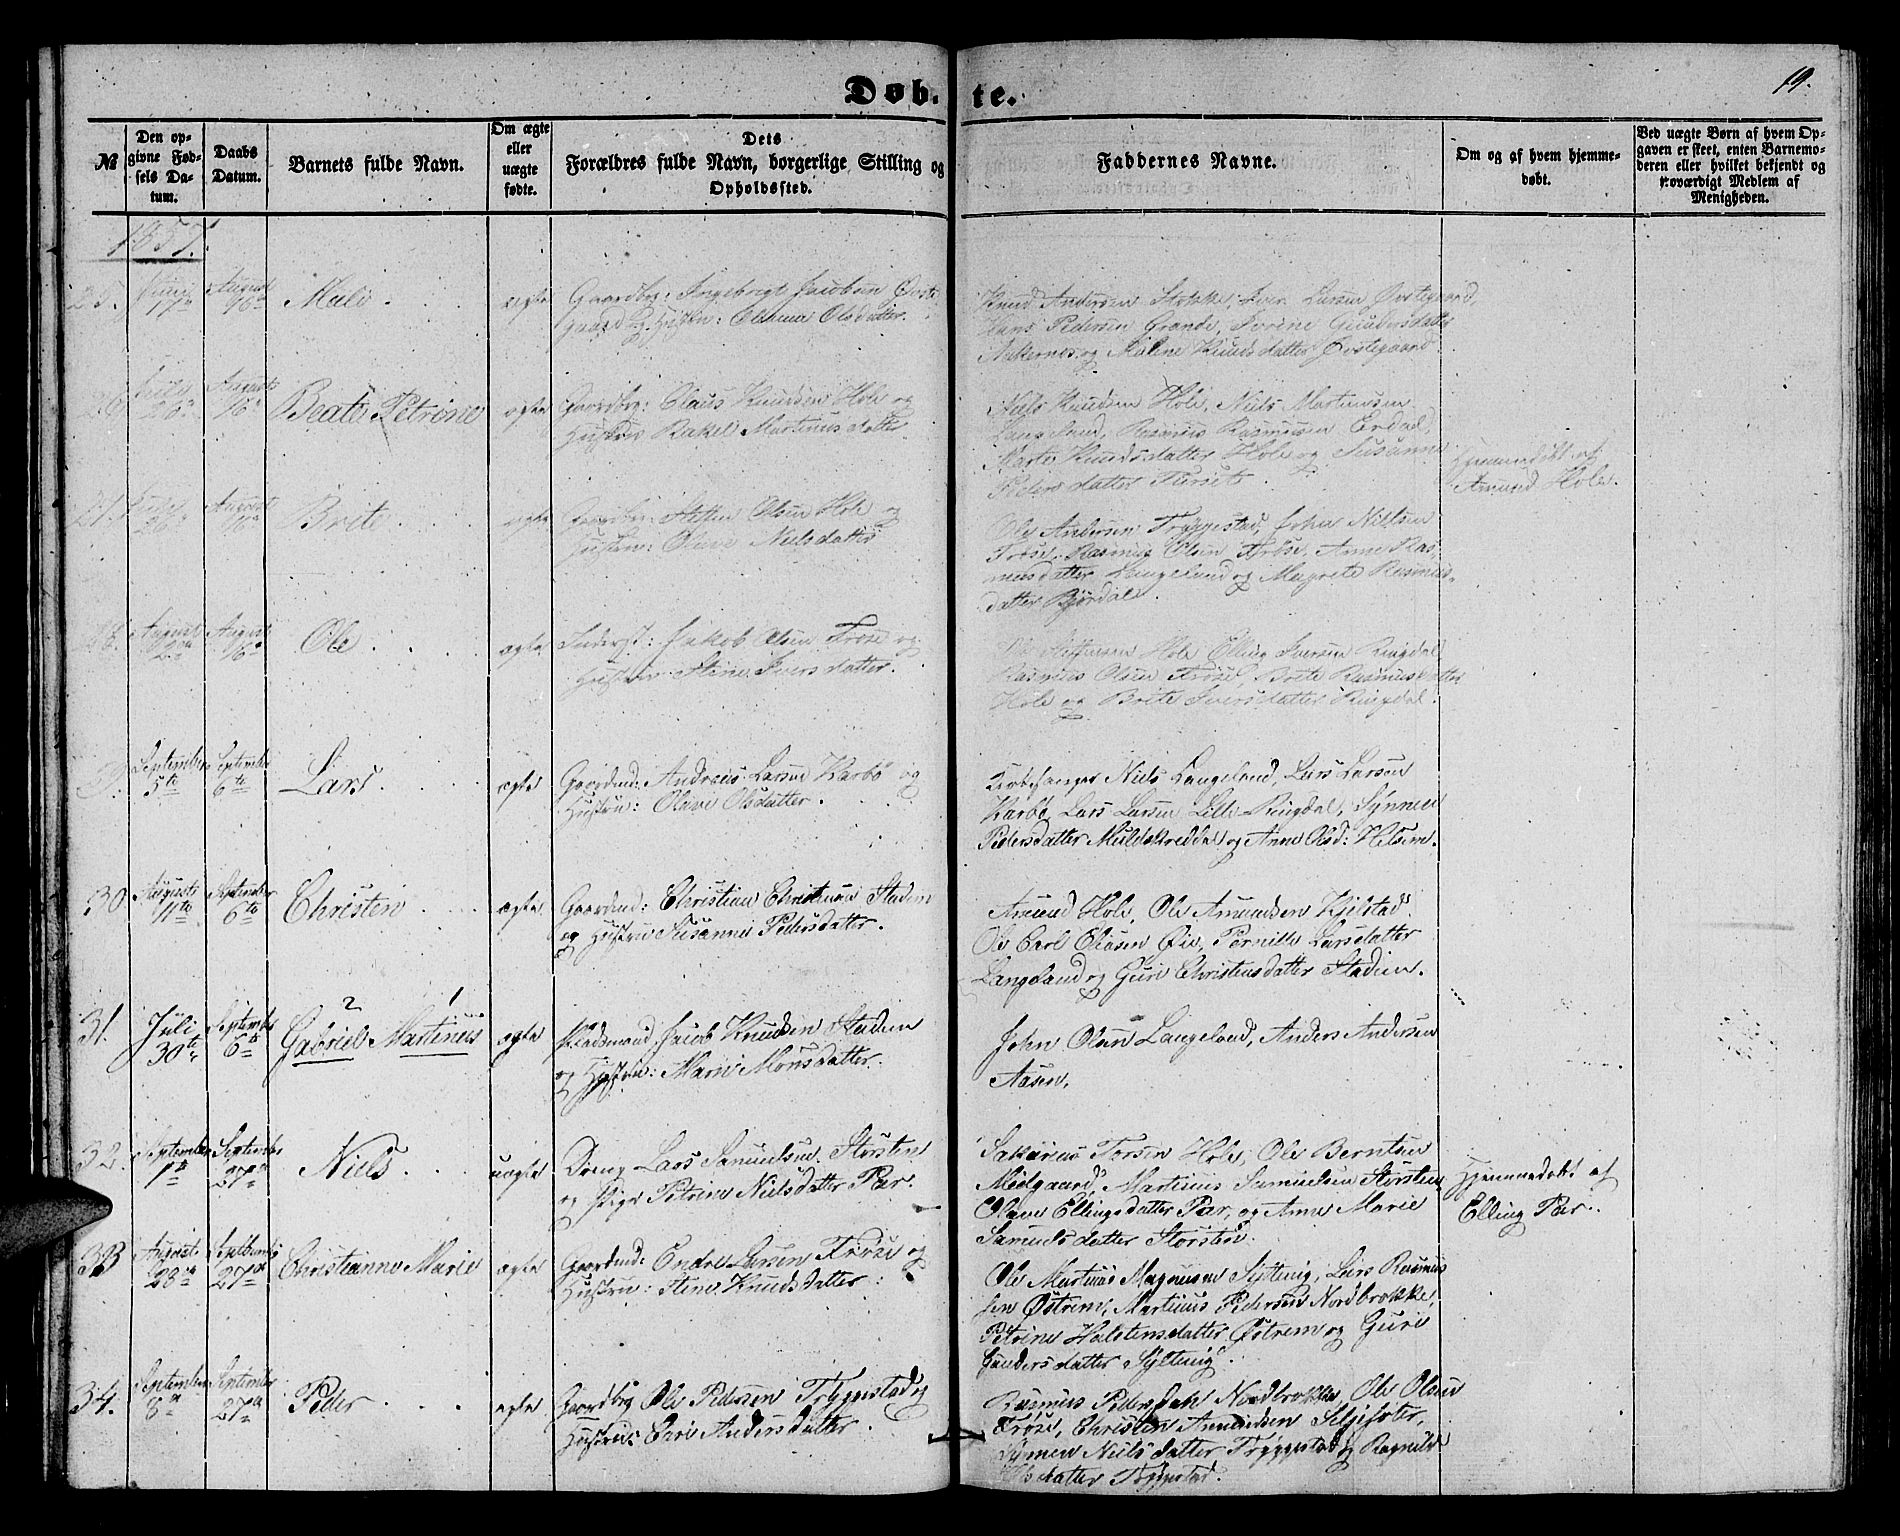 Døb- te.
19.
№
Den opgivne Fødsels Datum.
Daabs Datum.
Barnets fulde Navn.
Om ægte eller uægte fødte.
Dets Forældres fulde Navn, borgerlige Stilling og Opholdssted.
Faddernes Navne.
Om og af hvem hjemmedøbt.
Ved uægte Børn af hvem Opgaven er skeet, enten Barnemoderen eller hvilket bekjendt og troværdigt Medlem af Menigheden.
1857.
25. 17de August 16de Mali ægte Gaardbrg: Ingebrigt Jacobsen Øvste
gaard og Hustru: Oldine Olsdatter.
Knud Andersen Stokke, Iver Larsen Øvstegaard,
Hans Pedersen Grande, Gunders datter
og Malene Knuds datter Øvstegaard
26 26de August 16de Beate Petrine ægte Gaardbrg: Olaus Knudsen Hole og
Hustru Rakel Martinus datter
Niels Knudsen Hole, Niels Martinusen
Langeland, Rasmus Rasmusen Erdal,
Marte Knudsdatter Hole og Susanne
Peders datter
Hjemmedøbt af
Amund Hole.
27. 26de August 16de Brite ægte Gaardbrg: Steffen Olsen Hole og
Hustru: Olave Niels datter
Ole Andersen Tryggestad, John Nielsen
Frøse, Rasmus Olsen Frøse, Anne Ras
mus datter Langeland og Magrete Rasmus-
datter Bjørdal.
28. August 2den August 16de Ole ægte Inderst: Jakob Olsen Frøse og
Hustru Stine Ivers datter.
Steffensen Hole Elling Iversen Ringdal
Rasmus Olsen Frøse, Brite Rasmus datter
Hole og Brite Ivers datter Ringdal.
29. September 5te September 6te Lars ægte Gaardmd: Andreas Larsen Karbø og
Hustru: Olave Olsdatter.
Kirkesanger Niels Langeland, Lars Larsen
Karbø, Lars Larsen Lille Ringdal, Synneve
Pedersdatter Muldskreddal og Anne Olsd:
30. Augusts 11te September 6te Christen ægte Gaardmd: Christian Christensen Stadem
og Hustru Susanne Pedersdatter.
Amund Hole, Ole Amundsen Kjelstad.
Ole Carl Eliasen Øie, Pernille Larsdatter
Langeland og Guri Christens datter Stadem.
31. Juli 30te September 6te 2 1 Gabriel Martinus ægte Pladsmand Jacob Knudsen Stadem
og Hustru: Marie Mons datter.
John Olsen Langeland, Anders Andersen
Aasen.
32. September 1te September 27de Niels uægte Dreng Lars Samuelsen Storsten
og Pige Petrine Niels datter Par.
Sakarias Torsen Hole, Ole Berntsen
Midgaard, Martinus Samuelsen Storsten,
Olave Ellings datter Par, og Anne Marie
Samuels datter Storsten.
Hjemmedøbt af
Elling Par.
33 August 28de Septbembr 27de Christianne Marie ægte Gaardmd: Endre Larsen Frøse og
Hustru: Stine Knuds datter:
Ole Martinus Magnusen Sylteviig, Lars Rasmus
sen Østrem, Martinus Pedersen Nordbrokke,
Petrine Halstens datter Østrem og Guri
Gunders datter Sylteviig.
34. September 8de September 27de Peder ægte Gaardbrg Ole Pedersen Tryggestad og
Hustru: Anders datter.
Rasmus Peders Nordbrokke, Ole Olsen
Frøse, Christen Amundsen
Synneve Niels datter Tryggestad og Ragnild
Ols datter Tryggestad.